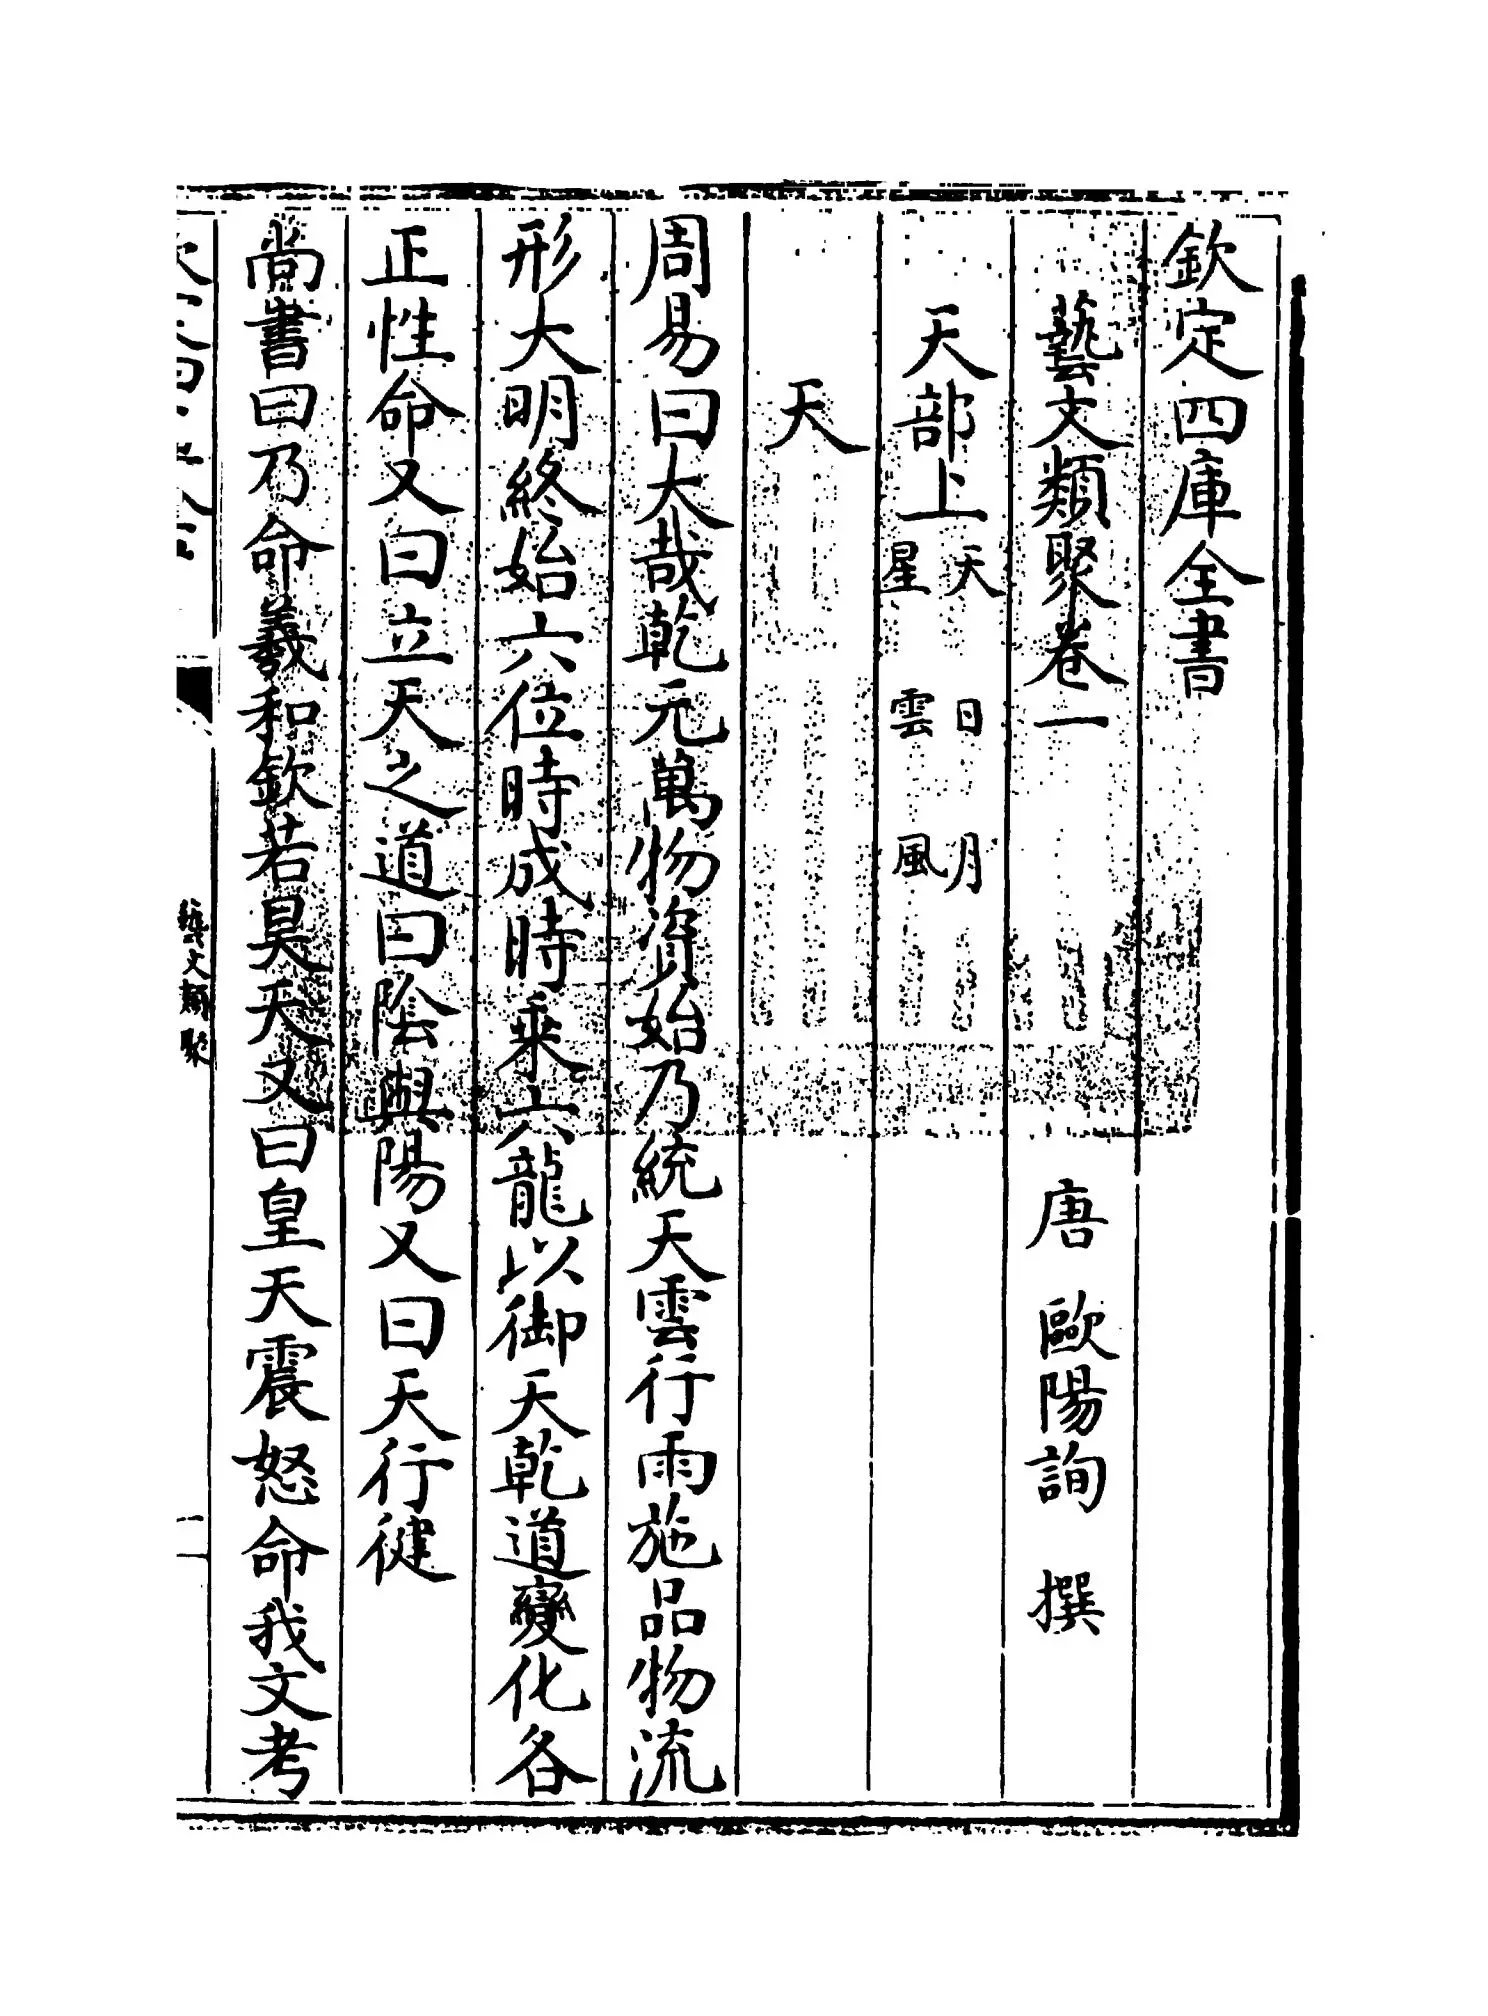 欽定四庫全書
藝文類聚卷一
唐 歐陽詢 撰
天部上 天 日 月 星 雲 風
天
周易曰大哉乾元萬物資始乃統天雲行雨施品物流
形大明終始六位時成時乘六龍以御天乾道變化各
正性命又曰立天之道曰陰與陽又曰天行健
尚書曰乃命羲和欽若昊天又曰皇天震怒命我文考
藝文類聚
一